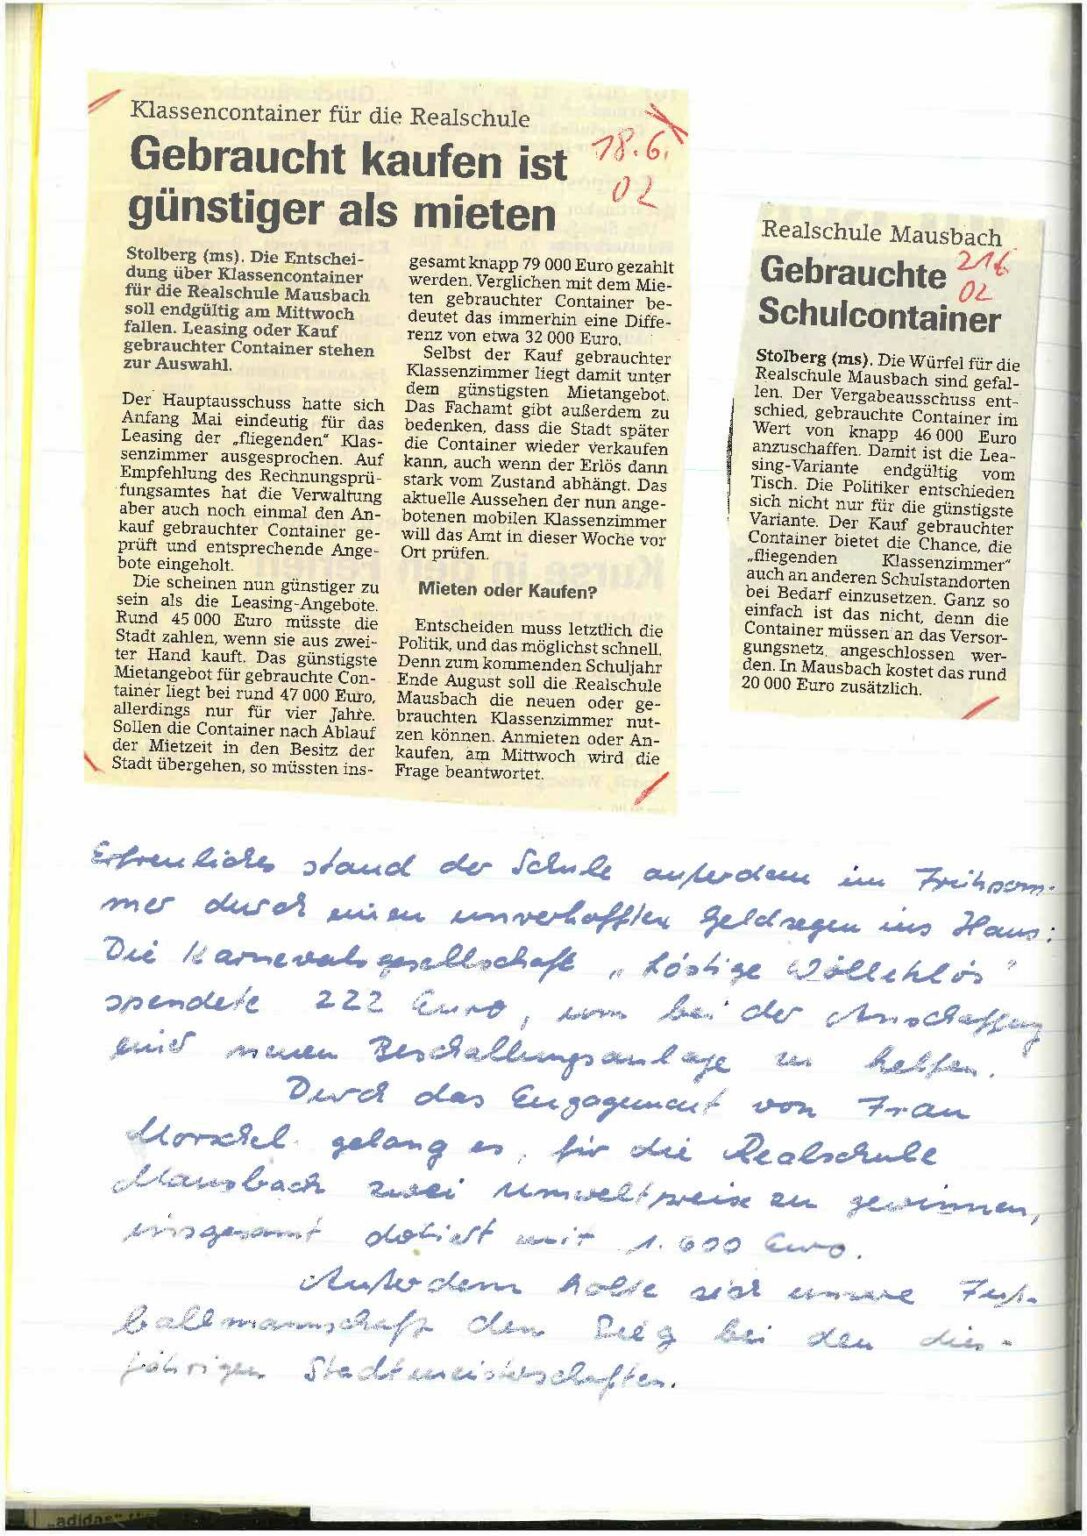 Klassencontainer für die Realschule
Gebraucht kaufen ist
günstiger als mieten
18.6.
02
Stolberg (ms). Die Entschei-
dung über Klassencontainer
für die Realschule Mausbach
soll endgültig am Mittwoch
fallen. Leasing oder Kauf
gebrauchter Container stehen
zur Auswahl.
Der Hauptausschuss hatte sich
Anfang Mai eindeutig für das
Leasing der „fliegenden" Klas-
senzimmer ausgesprochen. Auf
Empfehlung des Rechnungsprü-
fungsamtes hat die Verwaltung
aber auch noch einmal den An-
kauf gebrauchter Container ge-
prüft und entsprechende Ange-
bote eingeholt.
Die scheinen nun günstiger zu
sein als die Leasing-Angebote.
Rund 45 000 Euro müsste die
Stadt zahlen, wenn sie aus zwei-
ter Hand kauft. Das günstigste
Mietangebot für gebrauchte Con-
tainer liegt bei rund 47 000 Euro,
allerdings nur für vier Jahre.
Sollen die Container nach Ablauf
der Mietzeit in den Besitz der
Stadt übergehen, so müssten ins-
gesamt knapp 79 000 Euro gezahlt
werden. Verglichen mit dem Mie-
ten gebrauchter Container be-
deutet das immerhin eine Diffe-
renz von etwa 32 000 Euro.
Selbst der Kauf gebrauchter
Klassenzimmer liegt damit unter
dem günstigsten Mietangebot.
Das Fachamt gibt außerdem zu
bedenken, dass die Stadt später
die Container wieder verkaufen
kann, auch wenn der Erlös dann
stark vom Zustand abhängt. Das
aktuelle Aussehen der nun ange-
botenen mobilen Klassenzimmer
will das Amt in dieser Woche vor
Ort prüfen.
Mieten oder Kaufen?
Entscheiden muss letztlich die
Politik, und das möglichst schnell.
Denn zum kommenden Schuljahr
Ende August soll die Realschule
Mausbach die neuen oder ge-
brauchten Klassenzimmer nut-
zen können. Anmieten oder An-
kaufen, am Mittwoch wird die
Frage beantwortet.
Realschule Mausbach
Gebrauchte
Schulcontainer
216
02
Stolberg (ms). Die Würfel für die
Realschule Mausbach sind gefal-
len. Der Vergabeausschuss ent-
schied, gebrauchte Container im
Wert von knapp 46 000 Euro
anzuschaffen. Damit ist die Lea-
sing-Variante endgültig vom
Tisch. Die Politiker entschieden
sich nicht nur für die günstigste
Variante. Der Kauf gebrauchter
Container bietet die Chance, die
„fliegenden Klassenzimmer"
auch an anderen Schulstandorten
bei Bedarf einzusetzen. Ganz so
einfach ist das nicht, denn die
Container müssen an das Versor-
gungsnetz angeschlossen wer-
den. In Mausbach kostet das rund
20 000 Euro zusätzlich.
Erfreuliches stand der Schule außerdem im Frühsom-
mer durch einen unverhofften Geldregen ins Haus:
Die Karnevalsgesellschaft „Löstige Wöllеklös"
spendete 222 Euro, um bei der Anschaffung
einer neuen Beschallungsanlage zu helfen.
Durch das Engagement von Frau
Morschel gelang es, für die Realschule
Mausbach zwei Umweltpreise zu gewinnen,
insgesamt dotiert mit 1.600 Euro.
Außerdem holte sich unsere Fuß-
ballmannschaft den Sieg bei den dies-
jährigen Stadtmeisterschaften.
„adidas"